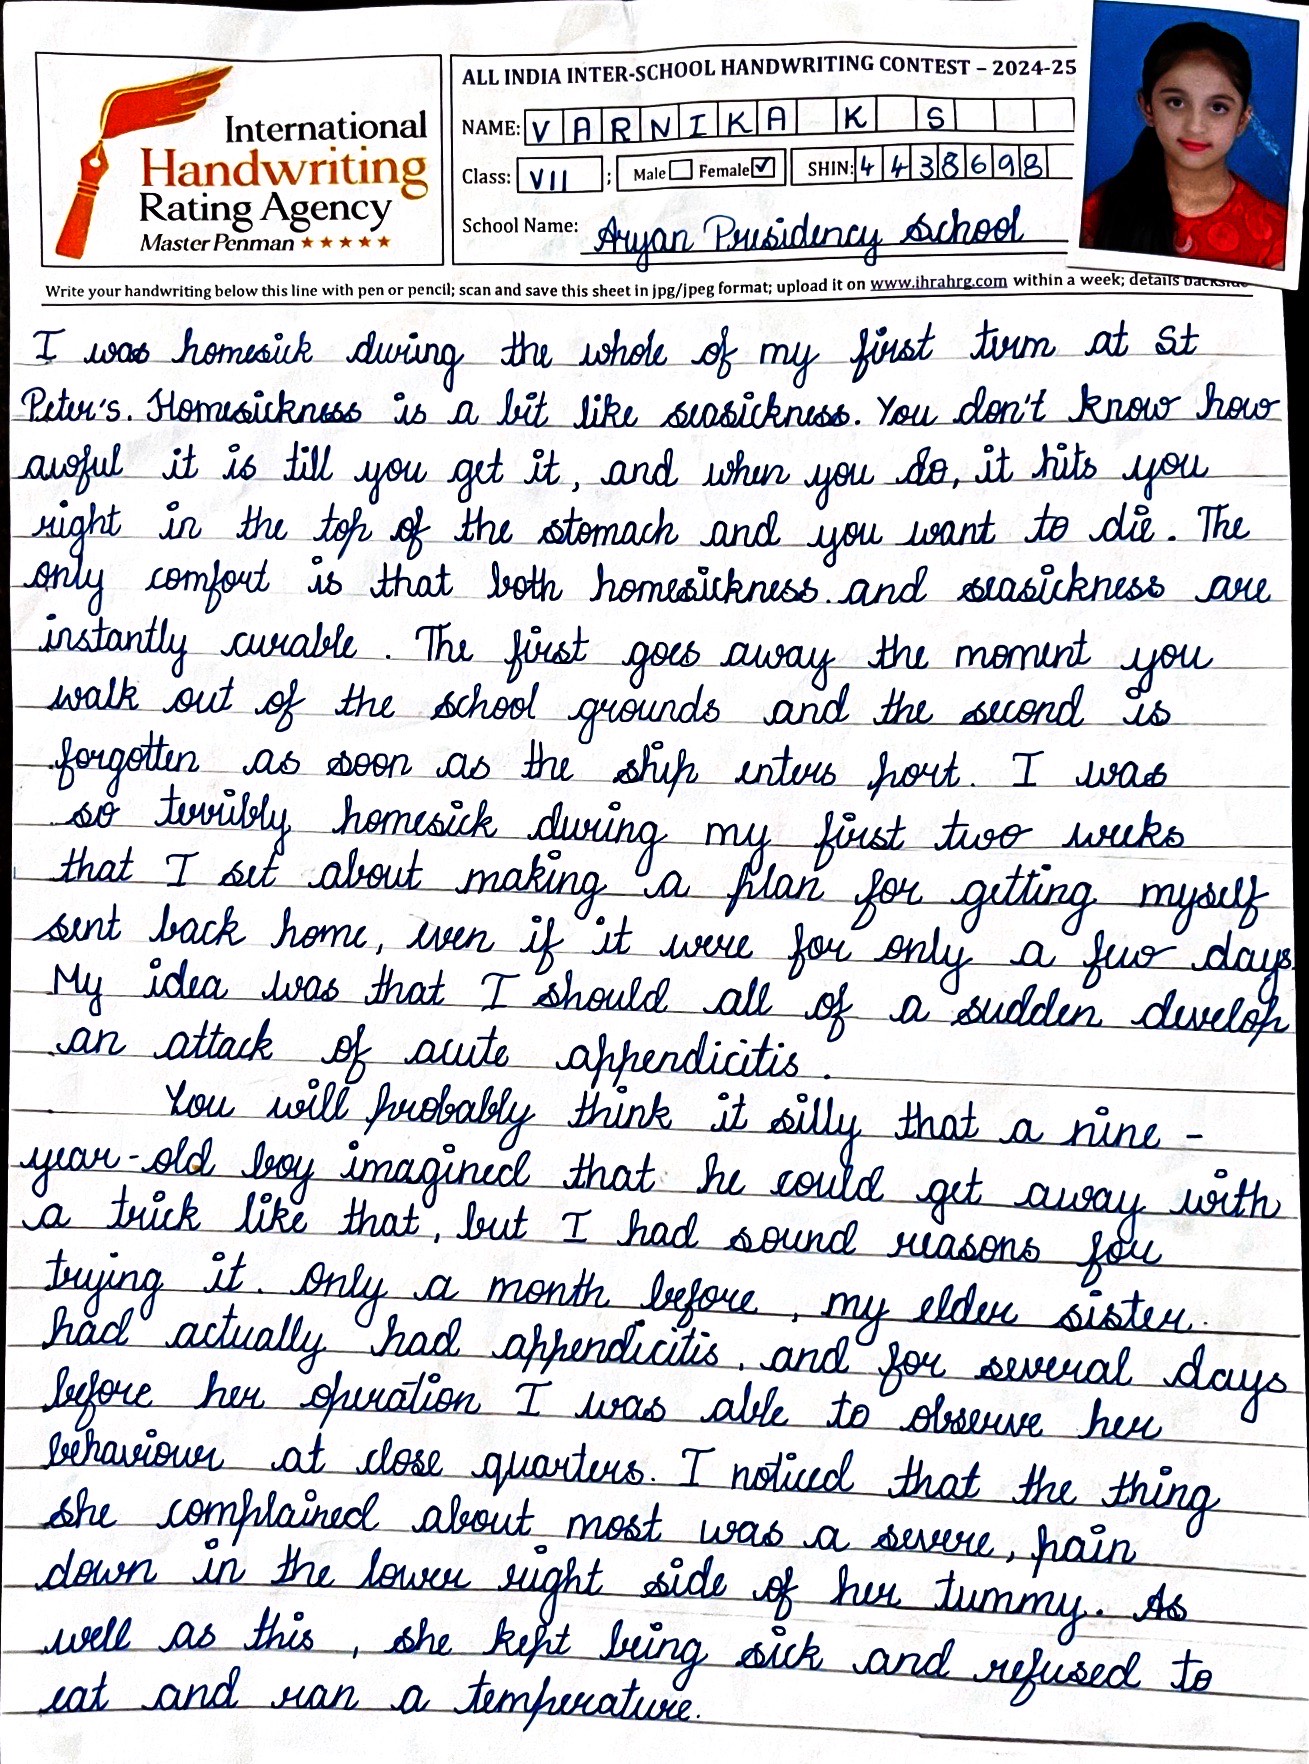 International
Handwriting
Rating Agency
Master Penman ★★★★★
ALL INDIA INTER-SCHOOL HANDWRITING CONTEST – 2024-25
NAME: VARNIKA K S
Class: VII ; Male Female ✓ SHIN: 4438698
School Name: Aryan Presidency School
Write your handwriting below this line with pen or pencil; scan and save this sheet in jpg/jpeg format; upload it on www.ihrahrg.com within a week; details backside
I was homesick during the whole of my first term at St
Peter's. Homesickness is a bit like seasickness. You don't know how
awful it is till you get it, and when you do, it hits you
right in the top of the stomach and you want to die. The
only comfort is that both homesickness and seasickness are
instantly curable. The first goes away the moment you
walk out of the school grounds and the second is
forgotten as soon as the ship enters port. I was
so terribly homesick during my first two weeks
that I set about making a plan for getting myself
sent back home, even if it were for only a few days.
My idea was that I should all of a sudden develop
an attack of acute appendicitis.
You will probably think it silly that a nine -
year-old boy imagined that he could get away with
a trick like that, but I had sound reasons for
trying it. Only a month before, my elder sister
had actually had appendicitis, and for several days
before her operation I was able to observe her
behaviour at close quarters. I noticed that the thing
she complained about most was a severe, pain
down in the lower right side of her tummy. As
well as this, she kept being sick and refused to
eat and ran a temperature.